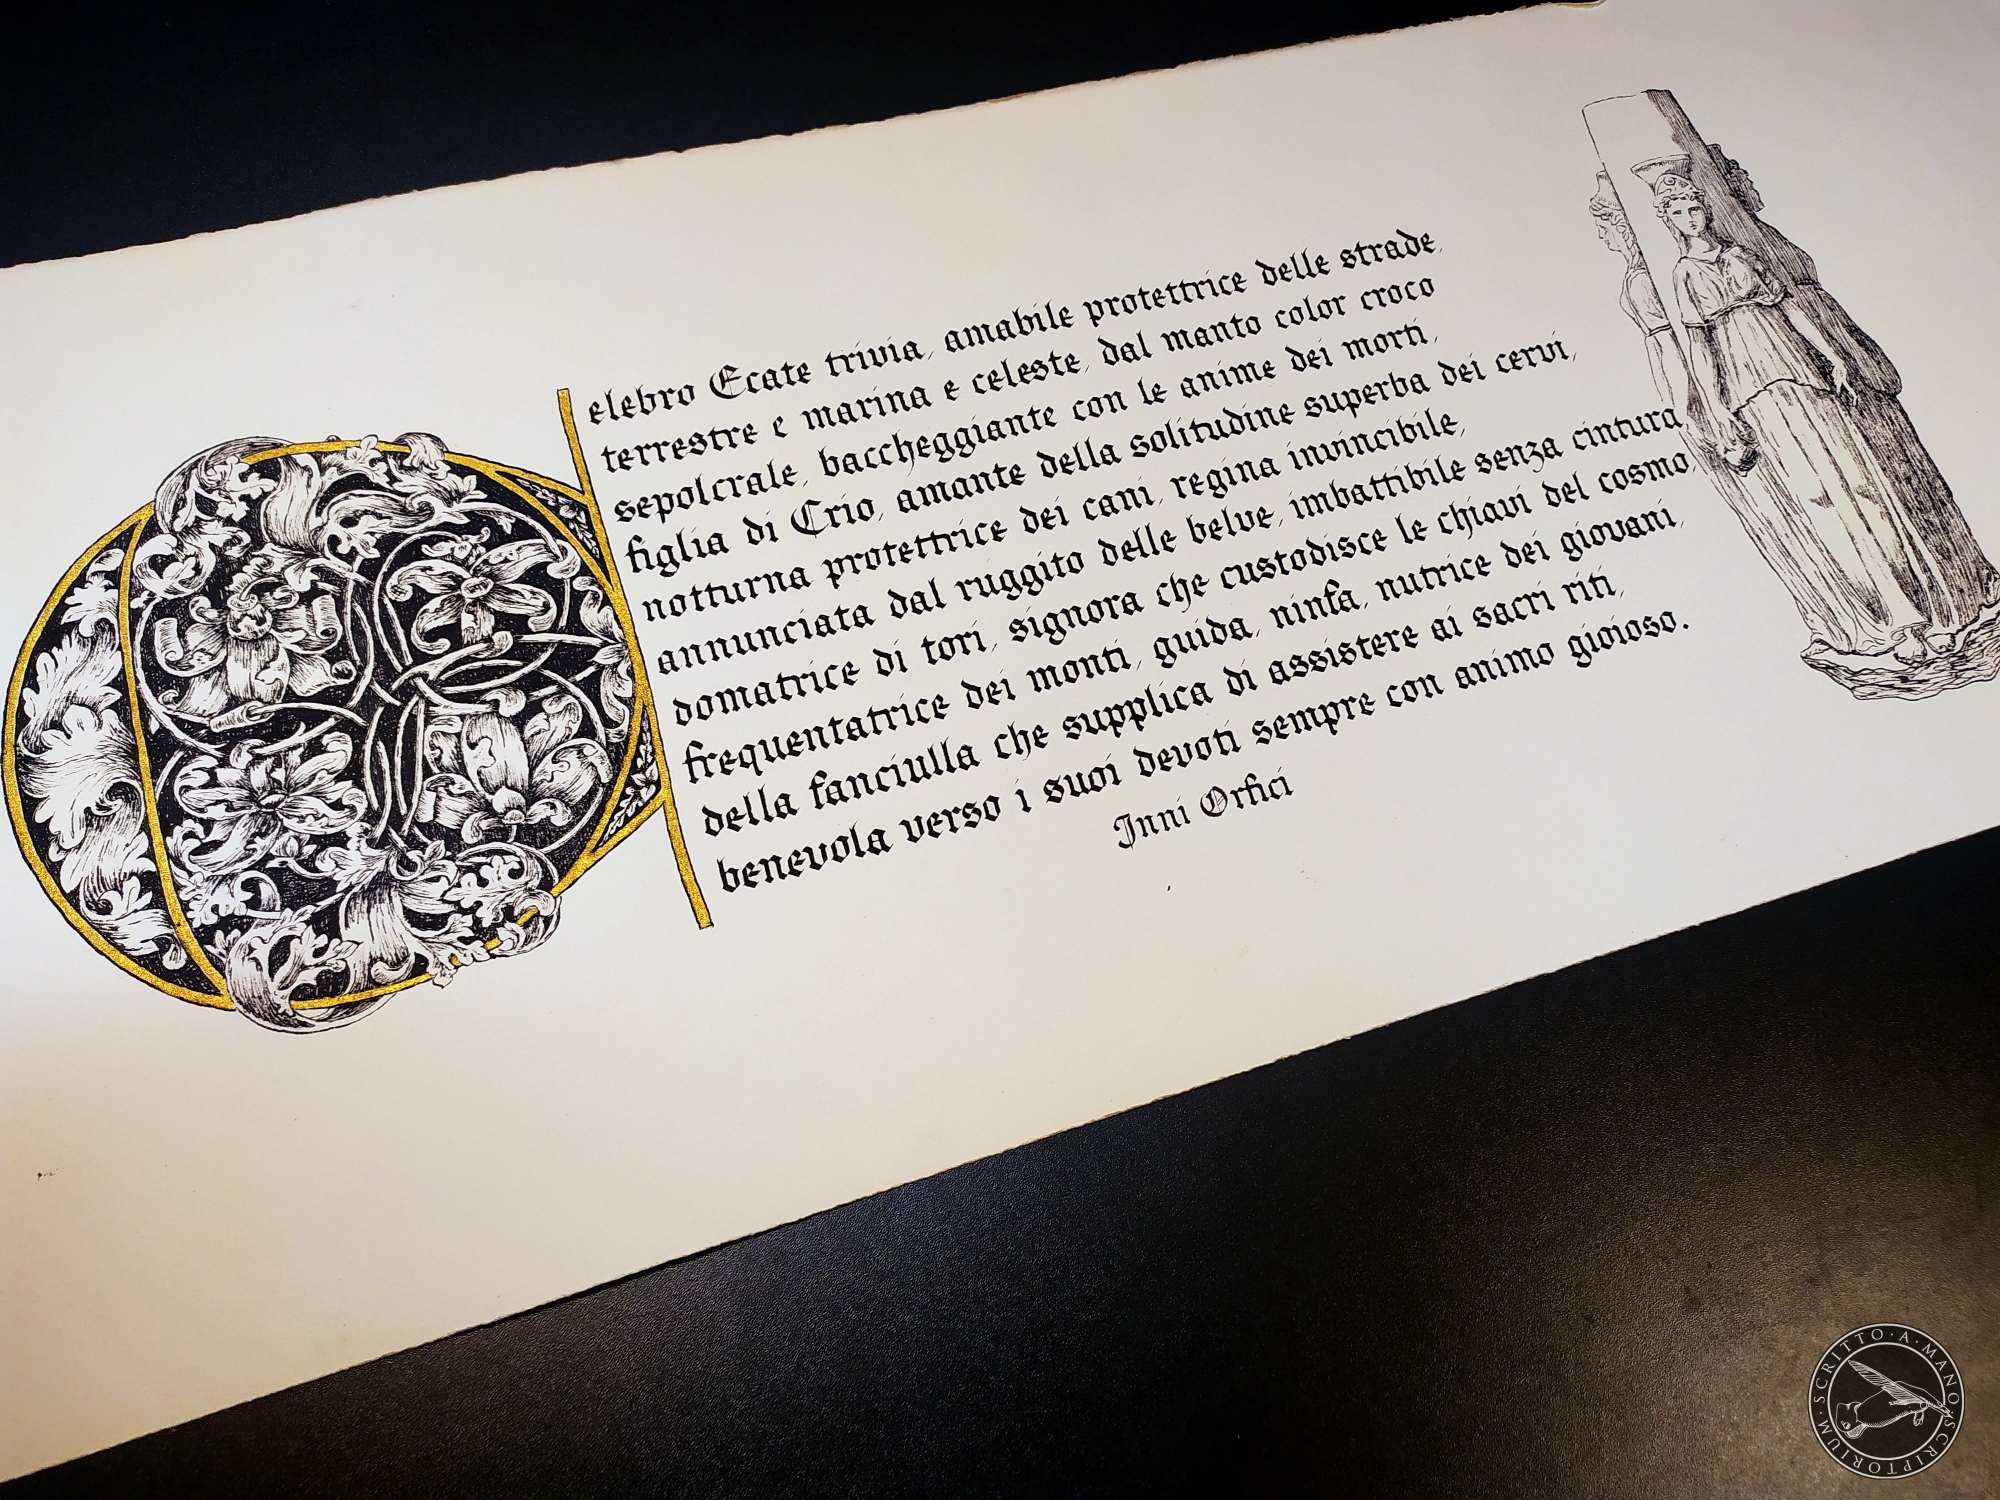 Celebro Ecate trivia, amabile protettrice delle strade,
terrestre e marina e celeste, dal manto color croco
sepolcrale, baccheggiante con le anime dei morti,
figlia di Crio, amante della solitudine superba dei cervi,
notturna protettrice dei cani, regina invincibile,
annunciata dal ruggito delle belve, imbattibile senza cintura,
domatrice di tori, signora che custodisce le chiavi del cosmo,
frequentatrice dei monti, guida, ninfa, nutrice dei giovani,
della fanciulla che supplica di assistere ai sacri riti,
benevola verso i suoi devoti sempre con animo gioioso.
Inni Orfici
SCRITTO·A·MANO·SCRIPTORIUM·